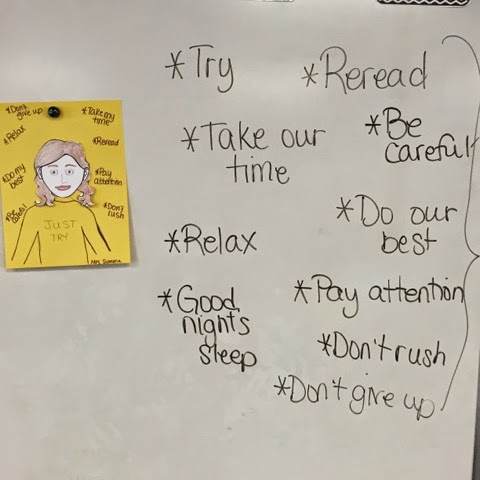 *Don't
give up
*Relax
*Do my
best
*Be
careful
*Take my
time
*Reread
*Pay
attention
*Don't
rush
JUST
TRY
Mrs.
*Try
*Take our
time
*Relax
*Good
nights
sleep
*Reread
*Be
careful
*Do our
best
*Pay attention
*Don't rush
*Don't give up